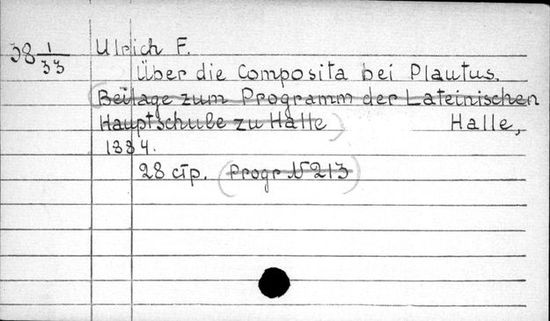 38 1/33 Ulrich F.
Über die Composita bei Plautus.
(Beilage zum Programm der Lateinischen
Hauptschule zu Halle) Halle,
1884.
28 стр. (Progr N 213)